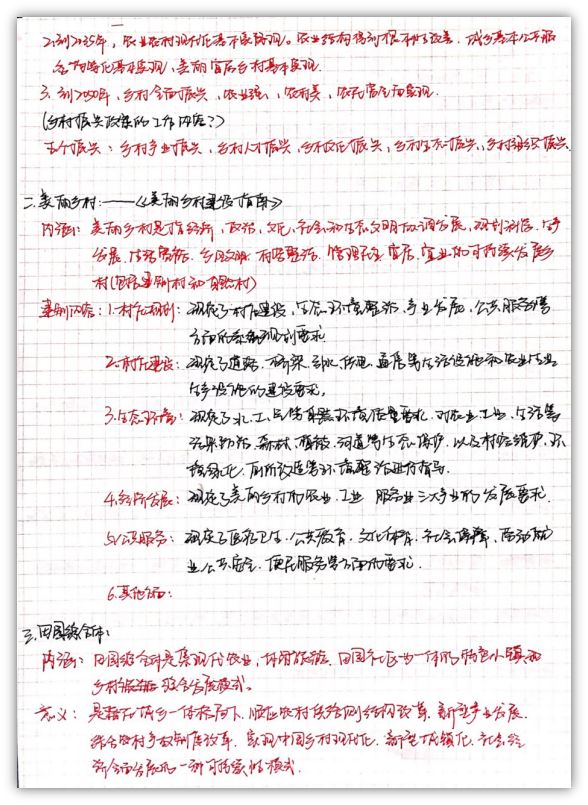 2.到2035年，农业农村现代化基本实现。农业结构得到根本性改善，城乡基本公共服
务均等化基本实现，美丽宜居乡村基本实现.
3.到2050年，乡村全面振兴，农业强，农村美，农民富全面实现.
(乡村振兴政策的工作内容?)
五个振兴：乡村产业振兴，乡村人才振兴，乡村文化振兴，乡村生态振兴，乡村组织振兴.
二.美丽乡村：——《美丽乡村建设指南》
内涵：美丽乡村是指经济，政治，文化，社会和生态文明协调发展，规划科学，生产
发展，生活宽裕，乡风文明，村容整洁，管理民主，宜居、宜业的可持续发展乡
村(包括建制村和自然村)
1.村庄规划：规定了村庄建设，生态环境整治，产业发展，公共服务等
方面的系统规划要求.
2.村庄建设：规定了道路，桥梁，引水，供电，通信等生活设施和农业生产
的建设要求.
3.生态环境：规定了水、土、气等环境质量要求，对农业，工业，生活等
污染防治，森林，植被，河道等生态保护，以及村容维护，环
境绿化，厕所改造等环境整治进行
4.经济发展：规定了美丽乡村的农业，工业，服务业三大产业的发展要求.
5.公共服务：规定了医疗卫生，公共教育，文化体育，社会保障，劳动就
业，公共安全，便民服务等方面的要求.
6.其他方面：
三.田园综合体：
内涵：田园综合体是集现代农业，休闲旅游，田园社区为一体的特色小镇和
乡村综合发展模式。
意义：是在城乡一体格局下，顺应农村供给侧结构改革，新型产业发展，
结合农村产权制度改革，实现中国乡村现代化，新型城镇化，社会经
济全面发展的一种可持续性模式.